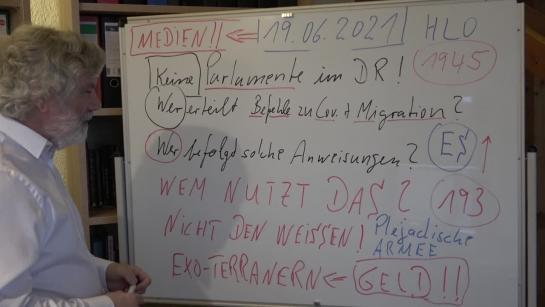 MEDIEN!! ⇐ 19.06.2021 HLO
Keine Parlamente im DR! 1945
Wer erteilt Befehle zu Cov. + Migration?
Wer befolgt solche Anweisungen? ES ↑
WEM NUTZT DAS? 193
NICHT DEN WEISSEN! Plejadische
ARMEE
EXO-TERRANERN ← GELD!!